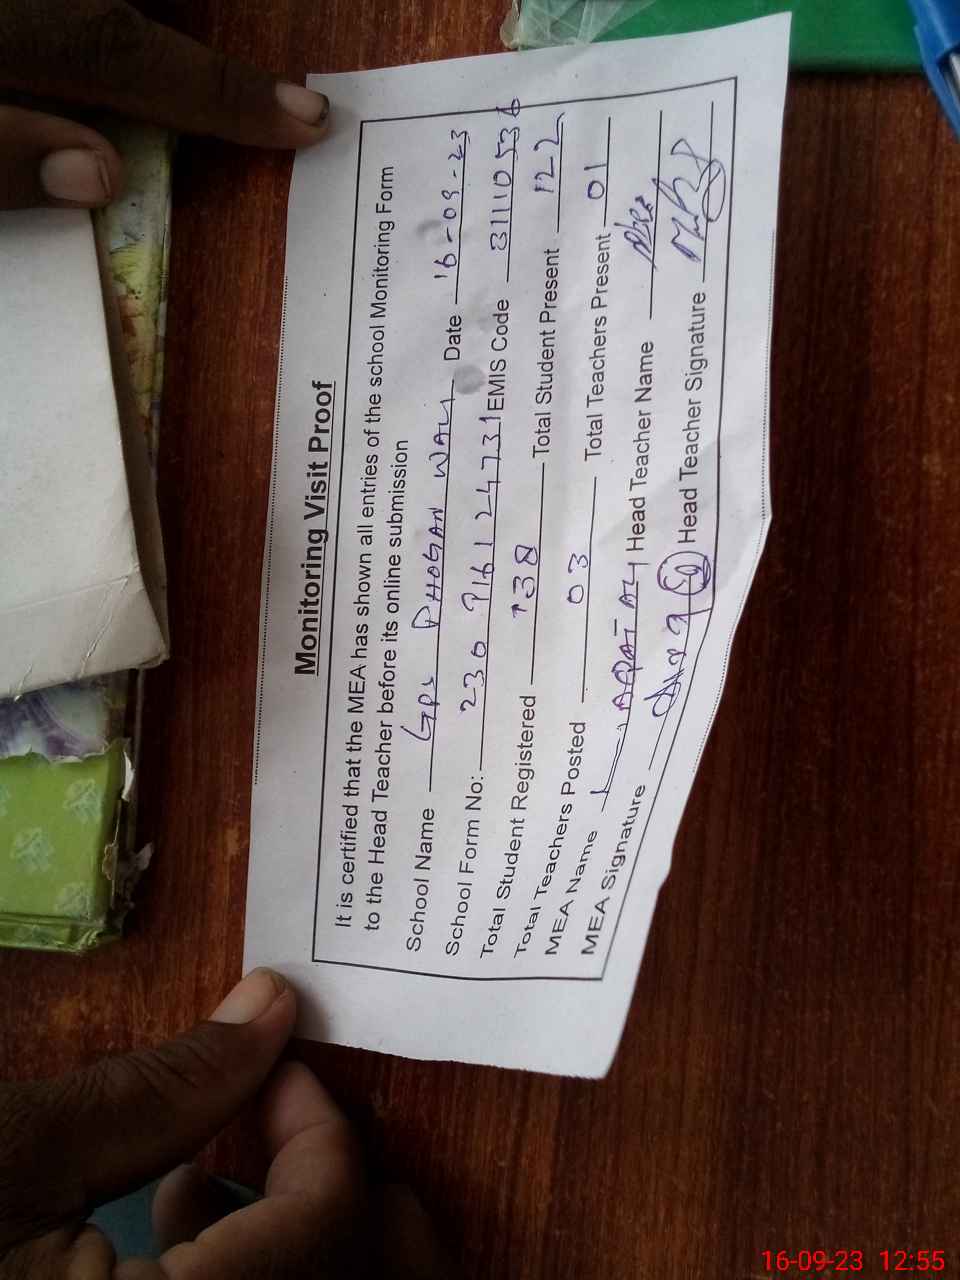 Monitoring Visit Proof
It is certified that the MEA has shown all entries of the school Monitoring Form
to the Head Teacher before its online submission
School Name GPS PHOGAN WALI Date 16-09-23
School Form No: 230916124731 EMIS Code 31110536
Total Student Registered 138 Total Student Present 122
Total Teachers Posted 03 Total Teachers Present 01
MEA Name Head Teacher Name
MEA Signature Head Teacher Signature
16-09-23 12:55